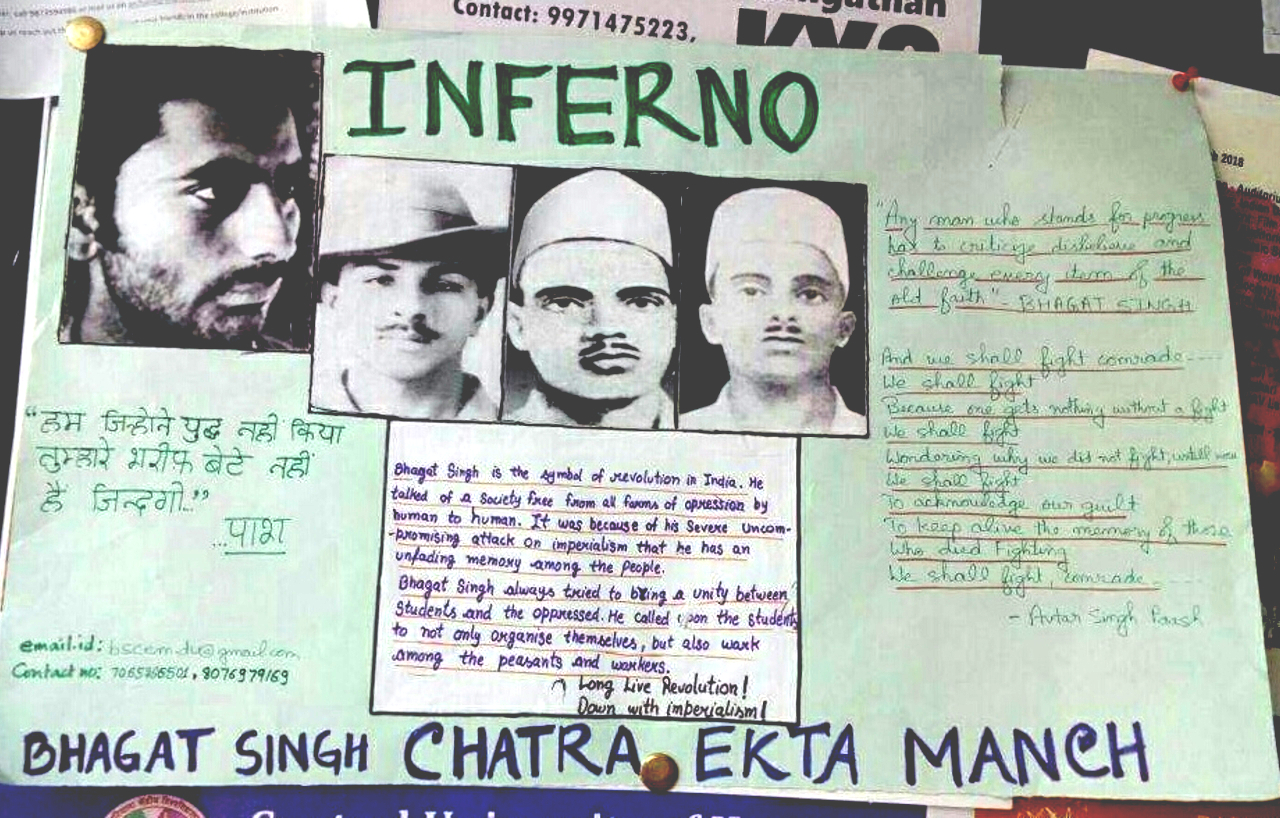 Contact: 9971475223,
KYS
INFERNO
h 2018
"Any man who stands for progress
has to criticize disbelieve and
challenge every item of the
old faith" - BHAGAT SINGH
And we shall fight comrade----
We shall fight
Because one gets nothing without a fight
We shall fight
Wondering why we did not fight, untill now
We shall fight
To acknowledge our guilt
To keep alive the memory of those
Who died Fighting
We shall fight, comrade
- Avtar Singh Paash
"हम जिन्होने युद्ध नही किया
तुम्हारे शरीफ बेटे नहीं
हैं जिन्दगी.."
...पाश
Bhagat Singh is the symbol of revolution in India. He
talked of a Society free from all forms of opression by
human to human. It was because of his Severe Uncom-
-promising attack on imperialism that he has an
unfading memory among the People.
Bhagat Singh always tried to bring a unity between
Students and the oppressed. He called upon the students
to not only organise themselves, but also work
among the peasants and workers.
Long Live Revolution!
Down with imperialism!
email.id: bscem.du@gmail.com
Contact no: 8076979169
BHAGAT SINGH CHATRA EKTA MANCH